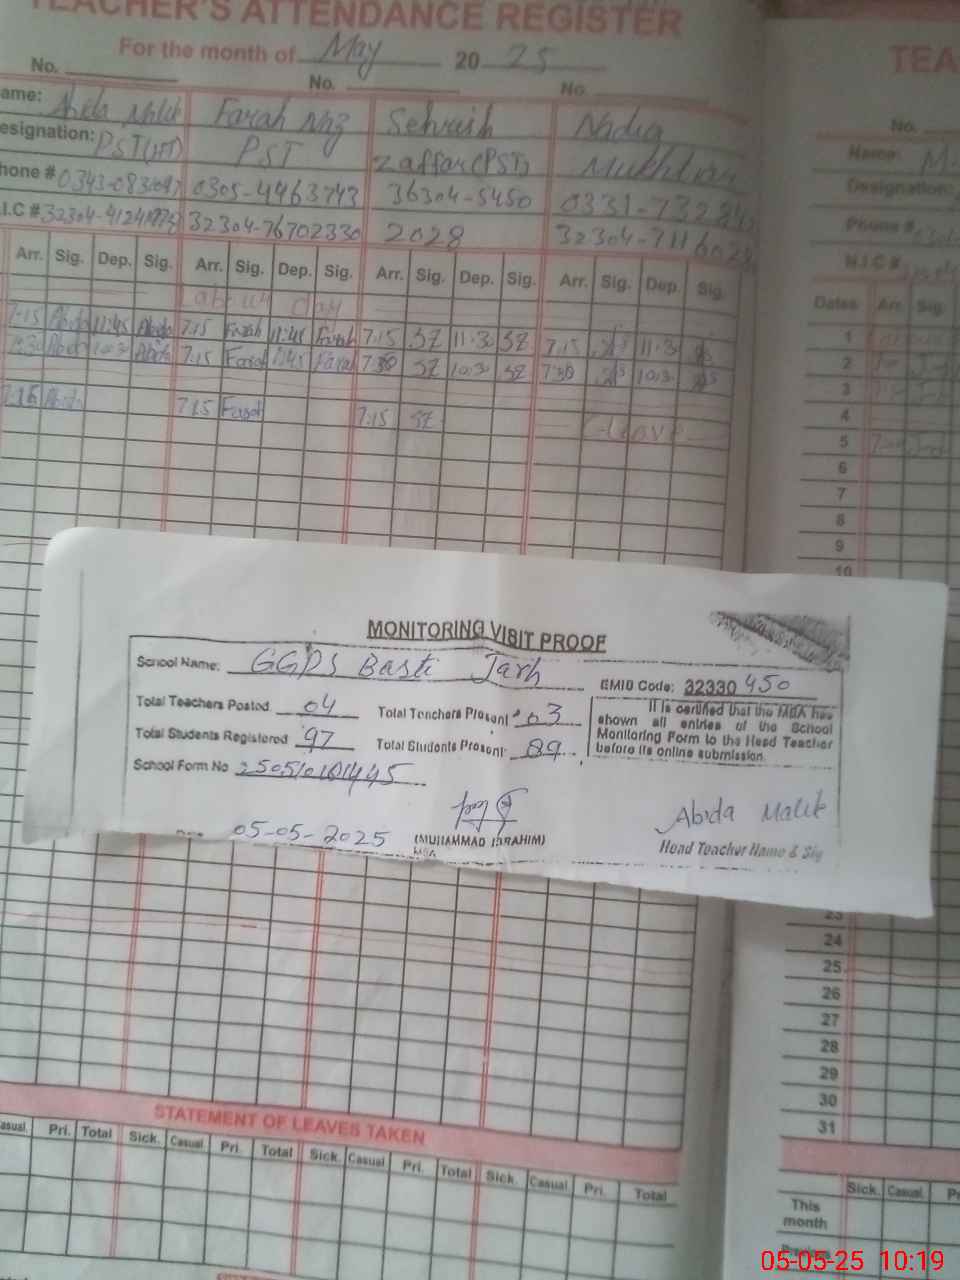 TEACHER'S ATTENDANCE REGISTER
For the month of May 2025
No. No. No.
ame: Abida Malik Farah Naz Sehrish Nadia
esignation: PST(HT) PST Zaffar(PST) Mukhtiar
hone # 0305-4463743 36304-5450 0331-
.I.C # 32304-76702330 2028
Arr. Sig. Dep. Sig. Arr. Sig. Dep. Sig. Arr. Sig. Dep. Sig. Arr. Sig. Dep. Sig.
labour Day
7:15 Abida 11:45 Abida 7:15 Farah 11:45 Farah 7:15 SZ 11:3 SZ 7:15 11:3
7:30 Abida 10:3 Abida 7:15 Farah 11:45 Farah 7:30 SZ 10:3 SZ 7:30 10:3
7:15 Abida 7:15 Farah 7:15 SZ Leave
MONITORING VISIT PROOF
School Name: GGPS Basti Jarh
EMIS Code: 32330450
Total Teachers Posted 04 Total Teachers Present: 03
Total Students Registered 97 Total Students Present: 89
School Form No
It is certified that the MEA has
shown all entries of the School
Monitoring Form to the Head Teacher
before its online submission.
05-05-2025
(MUHAMMAD IBRAHIM)
MEA
Abida Malik
Head Teacher Name & Sig
STATEMENT OF LEAVES TAKEN
asual. Pri. Total Sick. Casual. Pri. Total Sick. Casual. Pri. Total Sick. Casual. Pri. Total
TEA
No.
Name: M
Designation:
Phone #
N.I.C #
Dates Arr. Sig.
1
2
3
4
5
6
7
8
9
10
23
24
25
26
27
28
29
30
31
Sick. Casual. P
This
month
05-05-25 10:19